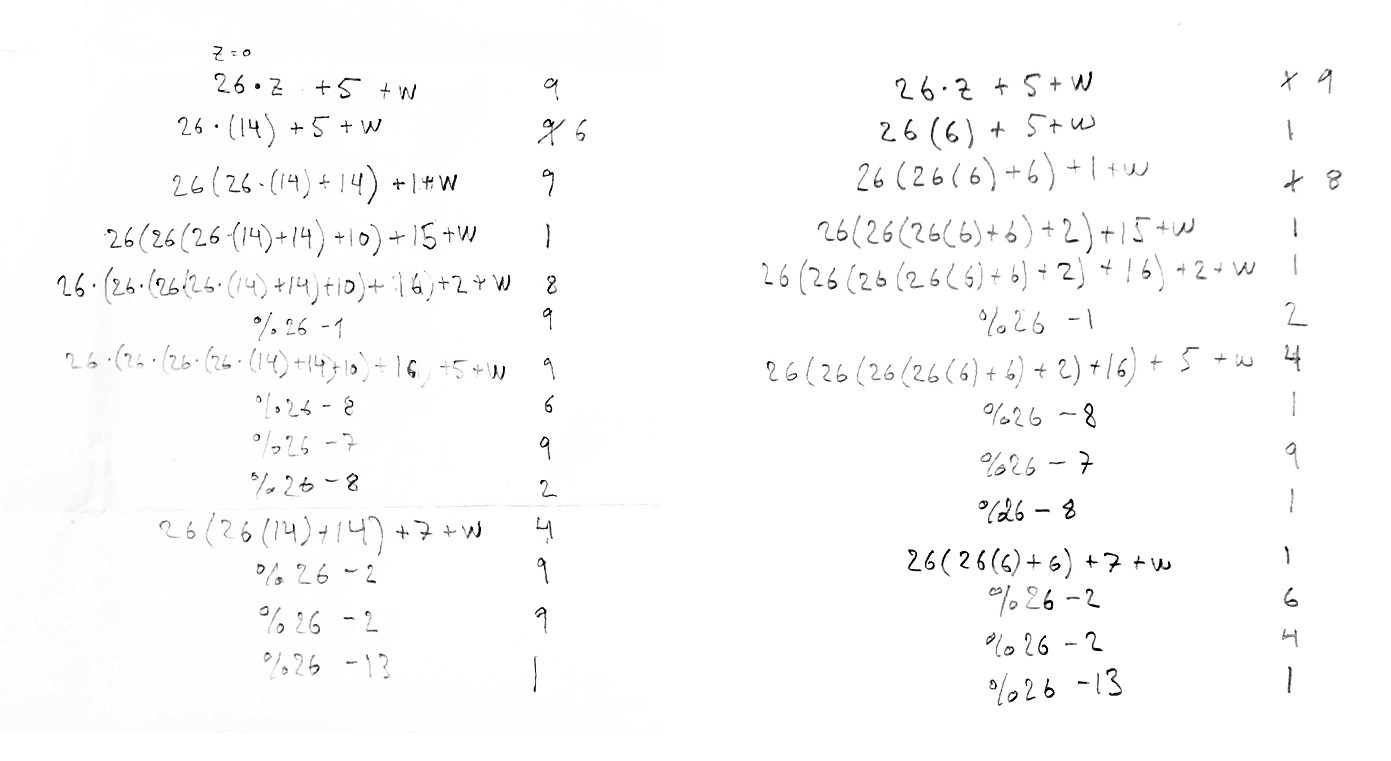 z=0
26·z +5 +w 9
26·(14) +5+w 6
26(26·(14)+14) +1+w 9
26(26(26·(14)+14)+10)+15+w 1
26·(26·(26(26·(14)+14)+10)+16)+2+w 8
%26-1 9
26·(26·(26·(26·(14)+14)+10)+16)+5+w 9
%26-8 6
%26-7 9
%26-8 2
26(26(14)+14)+7+w 4
%26-2 9
%26-2 9
%26-13 1
26·z+5+w 9
26(6)+5+w 1
26(26(6)+6)+1+w 8
26(26(26(6)+6)+2)+15+w 1
26(26(26(26(6)+6)+2)+16)+2+w 1
%26-1 2
26(26(26(26(6)+6)+2)+16)+5+w 4
%26-8 1
%26-7 9
%26-8 1
26(26(6)+6)+7+w 1
%26-2 6
%26-2 4
%26-13 1